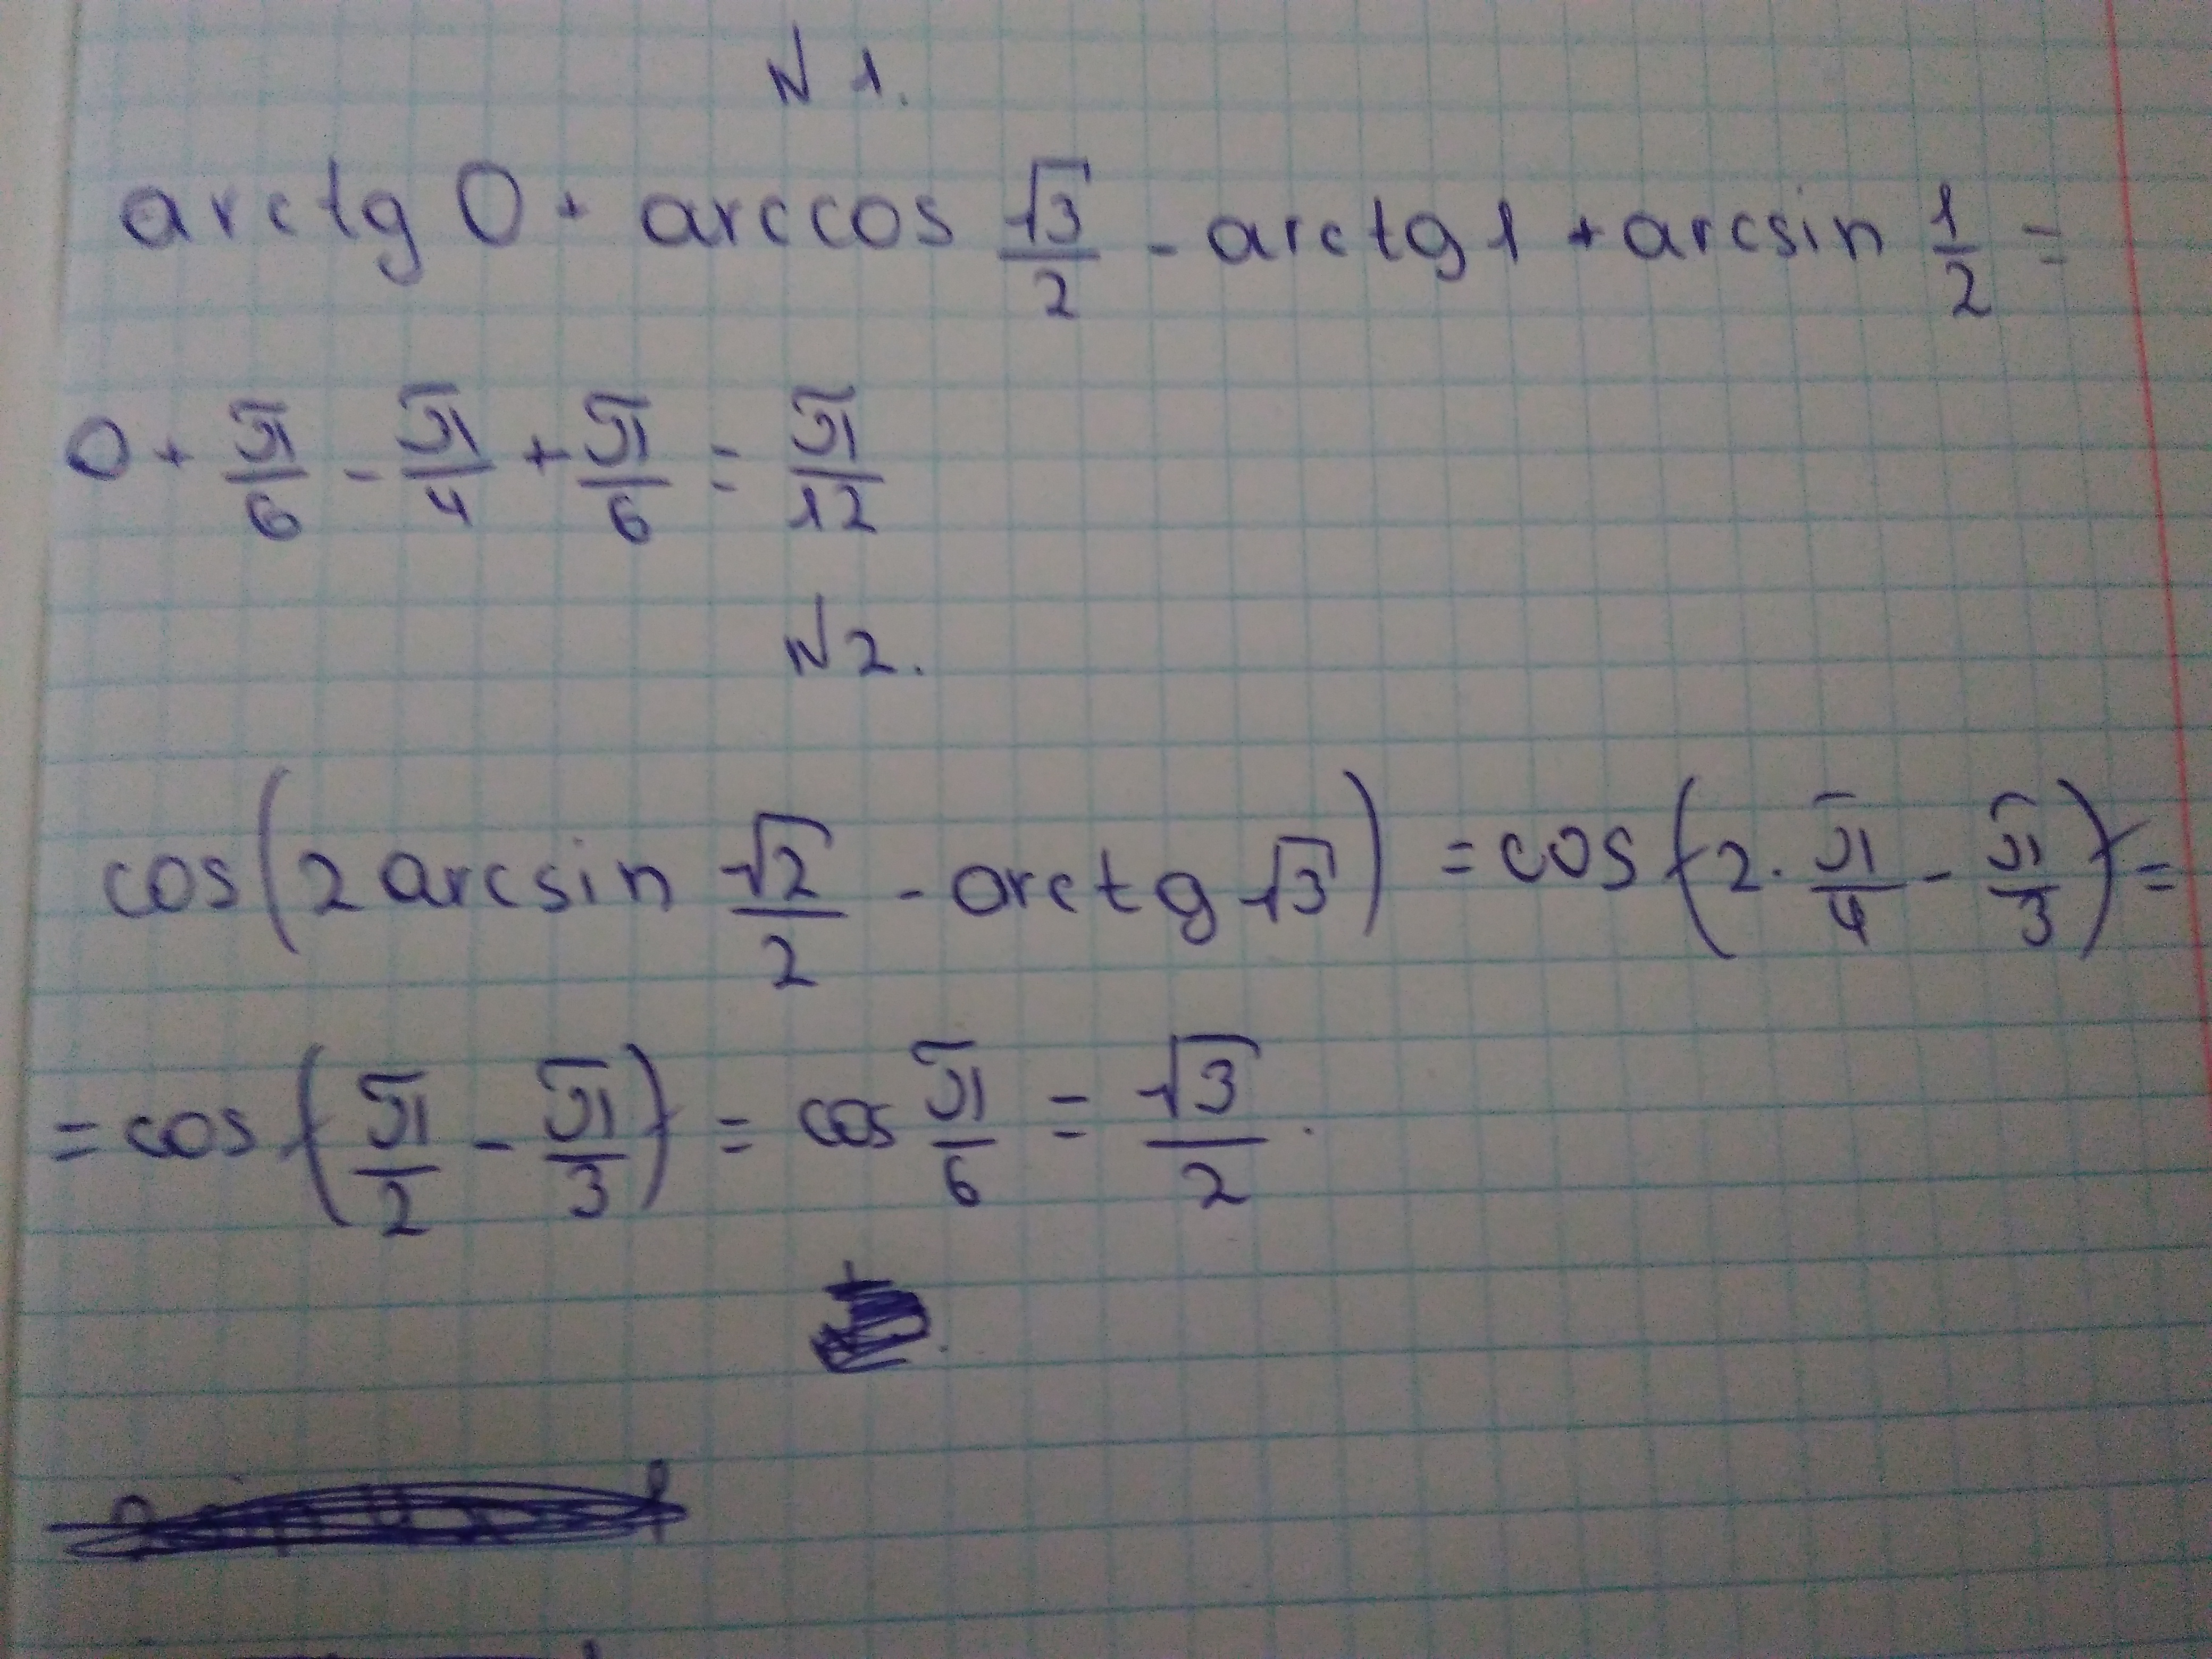 N 1.
arctg 0 + arccos √3/2 - arctg 1 + arcsin 1/2 =
0 + π/6 - π/4 + π/6 = π/12
N 2.
cos(2 arcsin √2/2 - arctg √3) = cos(2 · π/4 - π/3) =
= cos(π/2 - π/3) = cos π/6 = √3/2.